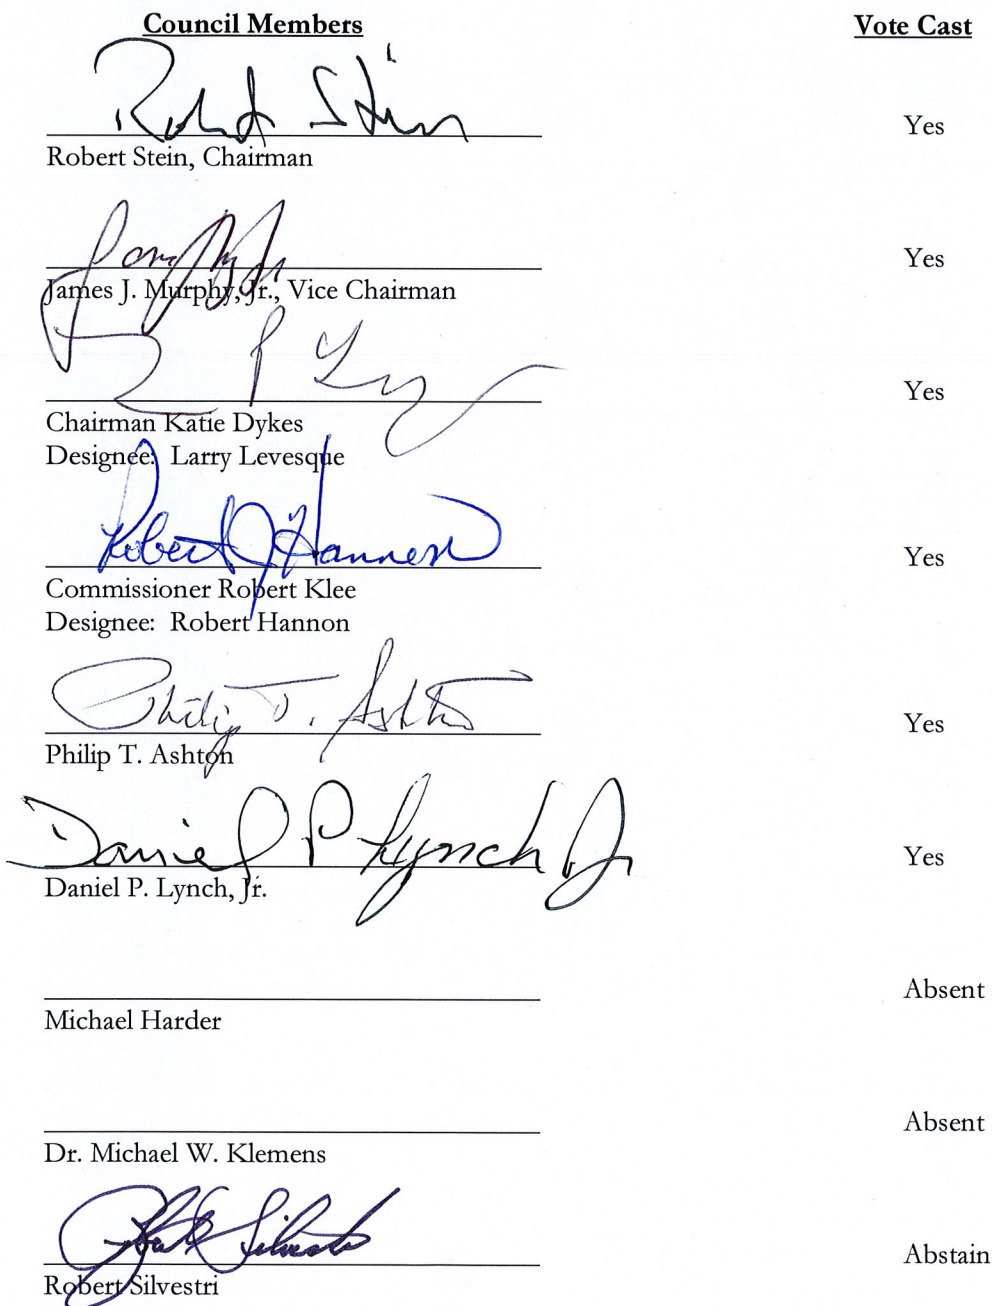 Council Members Vote Cast
Robert Stein Yes
Robert Stein, Chairman
Yes
James J. Murphy, Jr., Vice Chairman
Yes
Chairman Katie Dykes
Designee: Larry Levesque
Robert J Hannon Yes
Commissioner Robert Klee
Designee: Robert Hannon
Philip T. Ashton Yes
Philip T. Ashton
Daniel P Lynch Jr Yes
Daniel P. Lynch, Jr.
Absent
Michael Harder
Absent
Dr. Michael W. Klemens
Robert Silvestri Abstain
Robert Silvestri